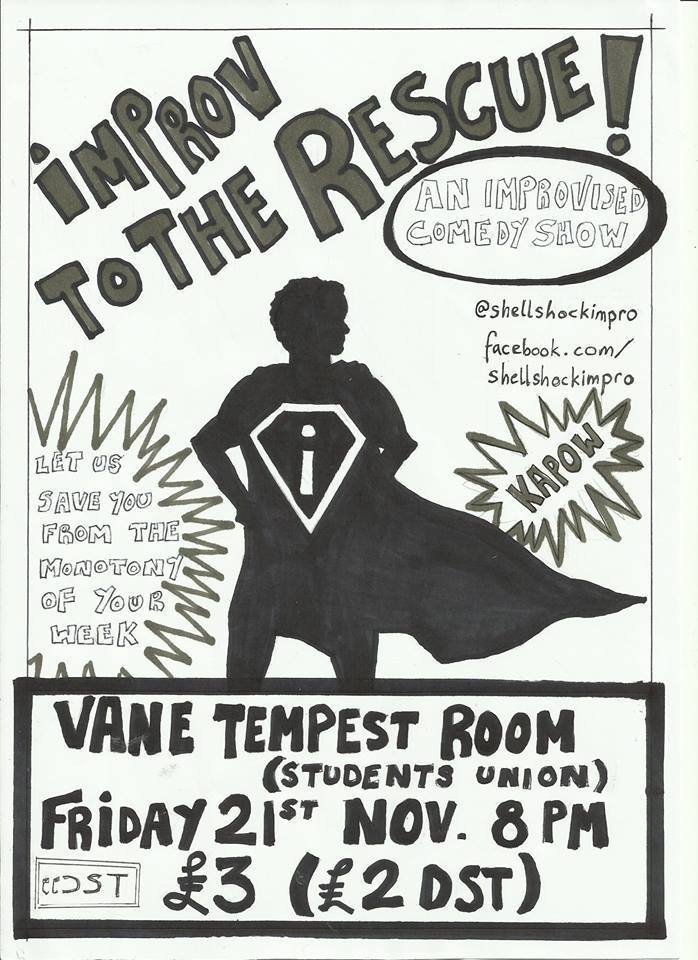 iMPROV
TO THE RESCUE!
AN IMPROVISED
COMEDY SHOW
@shellshockimpro
facebook.com/
shellshockimpro
KAPOW
i
LET US
SAVE YOU
FROM THE
MONOTONY
OF YOUR
WEEK
VANE TEMPEST ROOM
(STUDENTS UNION)
FRiDAY 21ST NOV. 8 PM
DST
£3 (£2 DST)